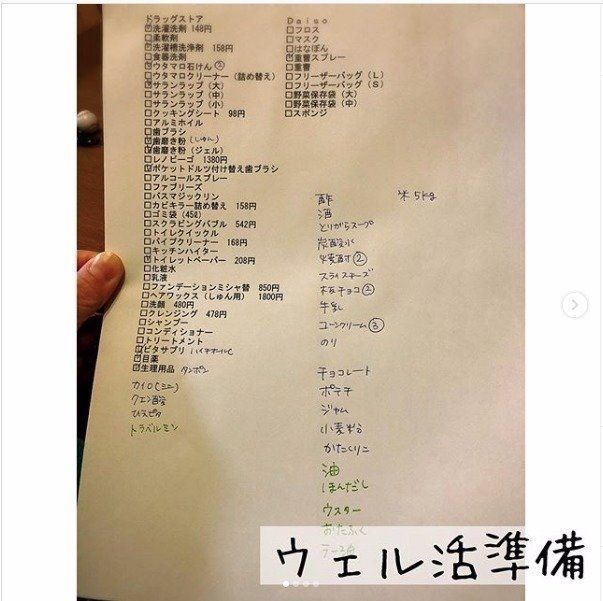 ドラッグストア
☑洗濯洗剤 148円
□柔軟剤
☑洗濯槽洗浄剤 158円
□食器洗剤
☑ウタマロ石けん②
□ウタマロクリーナー（詰め替え）
□サランラップ（大）
□サランラップ（中）
□サランラップ（小）
□クッキングシート 98円
□アルミホイル
□歯ブラシ
☑歯磨き粉（しゅん）
☑歯磨き粉（ジェル）
□レノビーゴ 1380円
☑ポケットドルツ付け替え歯ブラシ
□アルコールスプレー
□ファブリーズ
□バスマジックリン
□カビキラー詰め替え 158円
□ゴミ袋（45ℓ）
□スクラビングバブル 542円
□トイレクイックル
□パイプクリーナー 168円
□キッチンハイター
☑トイレットペーパー 208円
□化粧水
□乳液
□ファンデーションミシャ替 850円
□ヘアワックス（しゅん用） 1800円
□洗顔 480円
□クレンジング 478円
□シャンプー
□コンディショナー
□トリートメント
☑ビタサプリ ハイチオールC
☑目薬
☑生理用品 タンポン
カイロ（ミニ）
クエン酸
ひえピタ
トラベルミン
Daiso
□フロス
□マスク
□はなぽん
☑重曹スプレー
□重曹
□フリーザーバッグ（L）
□フリーザーバッグ（S）
□野菜保存袋（大）
□野菜保存袋（中）
□スポンジ
酢 米5kg
酒
とりがらスープ
炭酸水
焼酎②
スライスチーズ
板チョコ②
牛乳
コーンクリーム③
のり
チョコレート
ポテチ
ジャム
小麦粉
かたくりこ
油
ほんだし
ウスター
おたふく
ウェル活準備